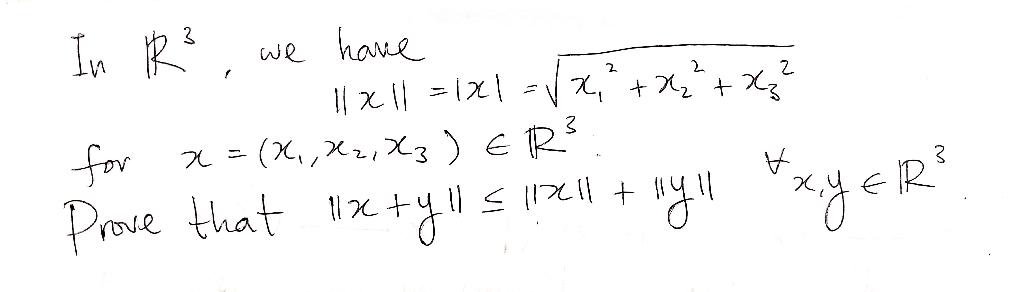 In ℝ³, we have
‖x‖ = |x| = √(x₁² + x₂² + x₃²)
for x = (x₁, x₂, x₃) ∈ ℝ³.
Prove that ‖x + y‖ ≤ ‖x‖ + ‖y‖ ∀ x, y ∈ ℝ³.